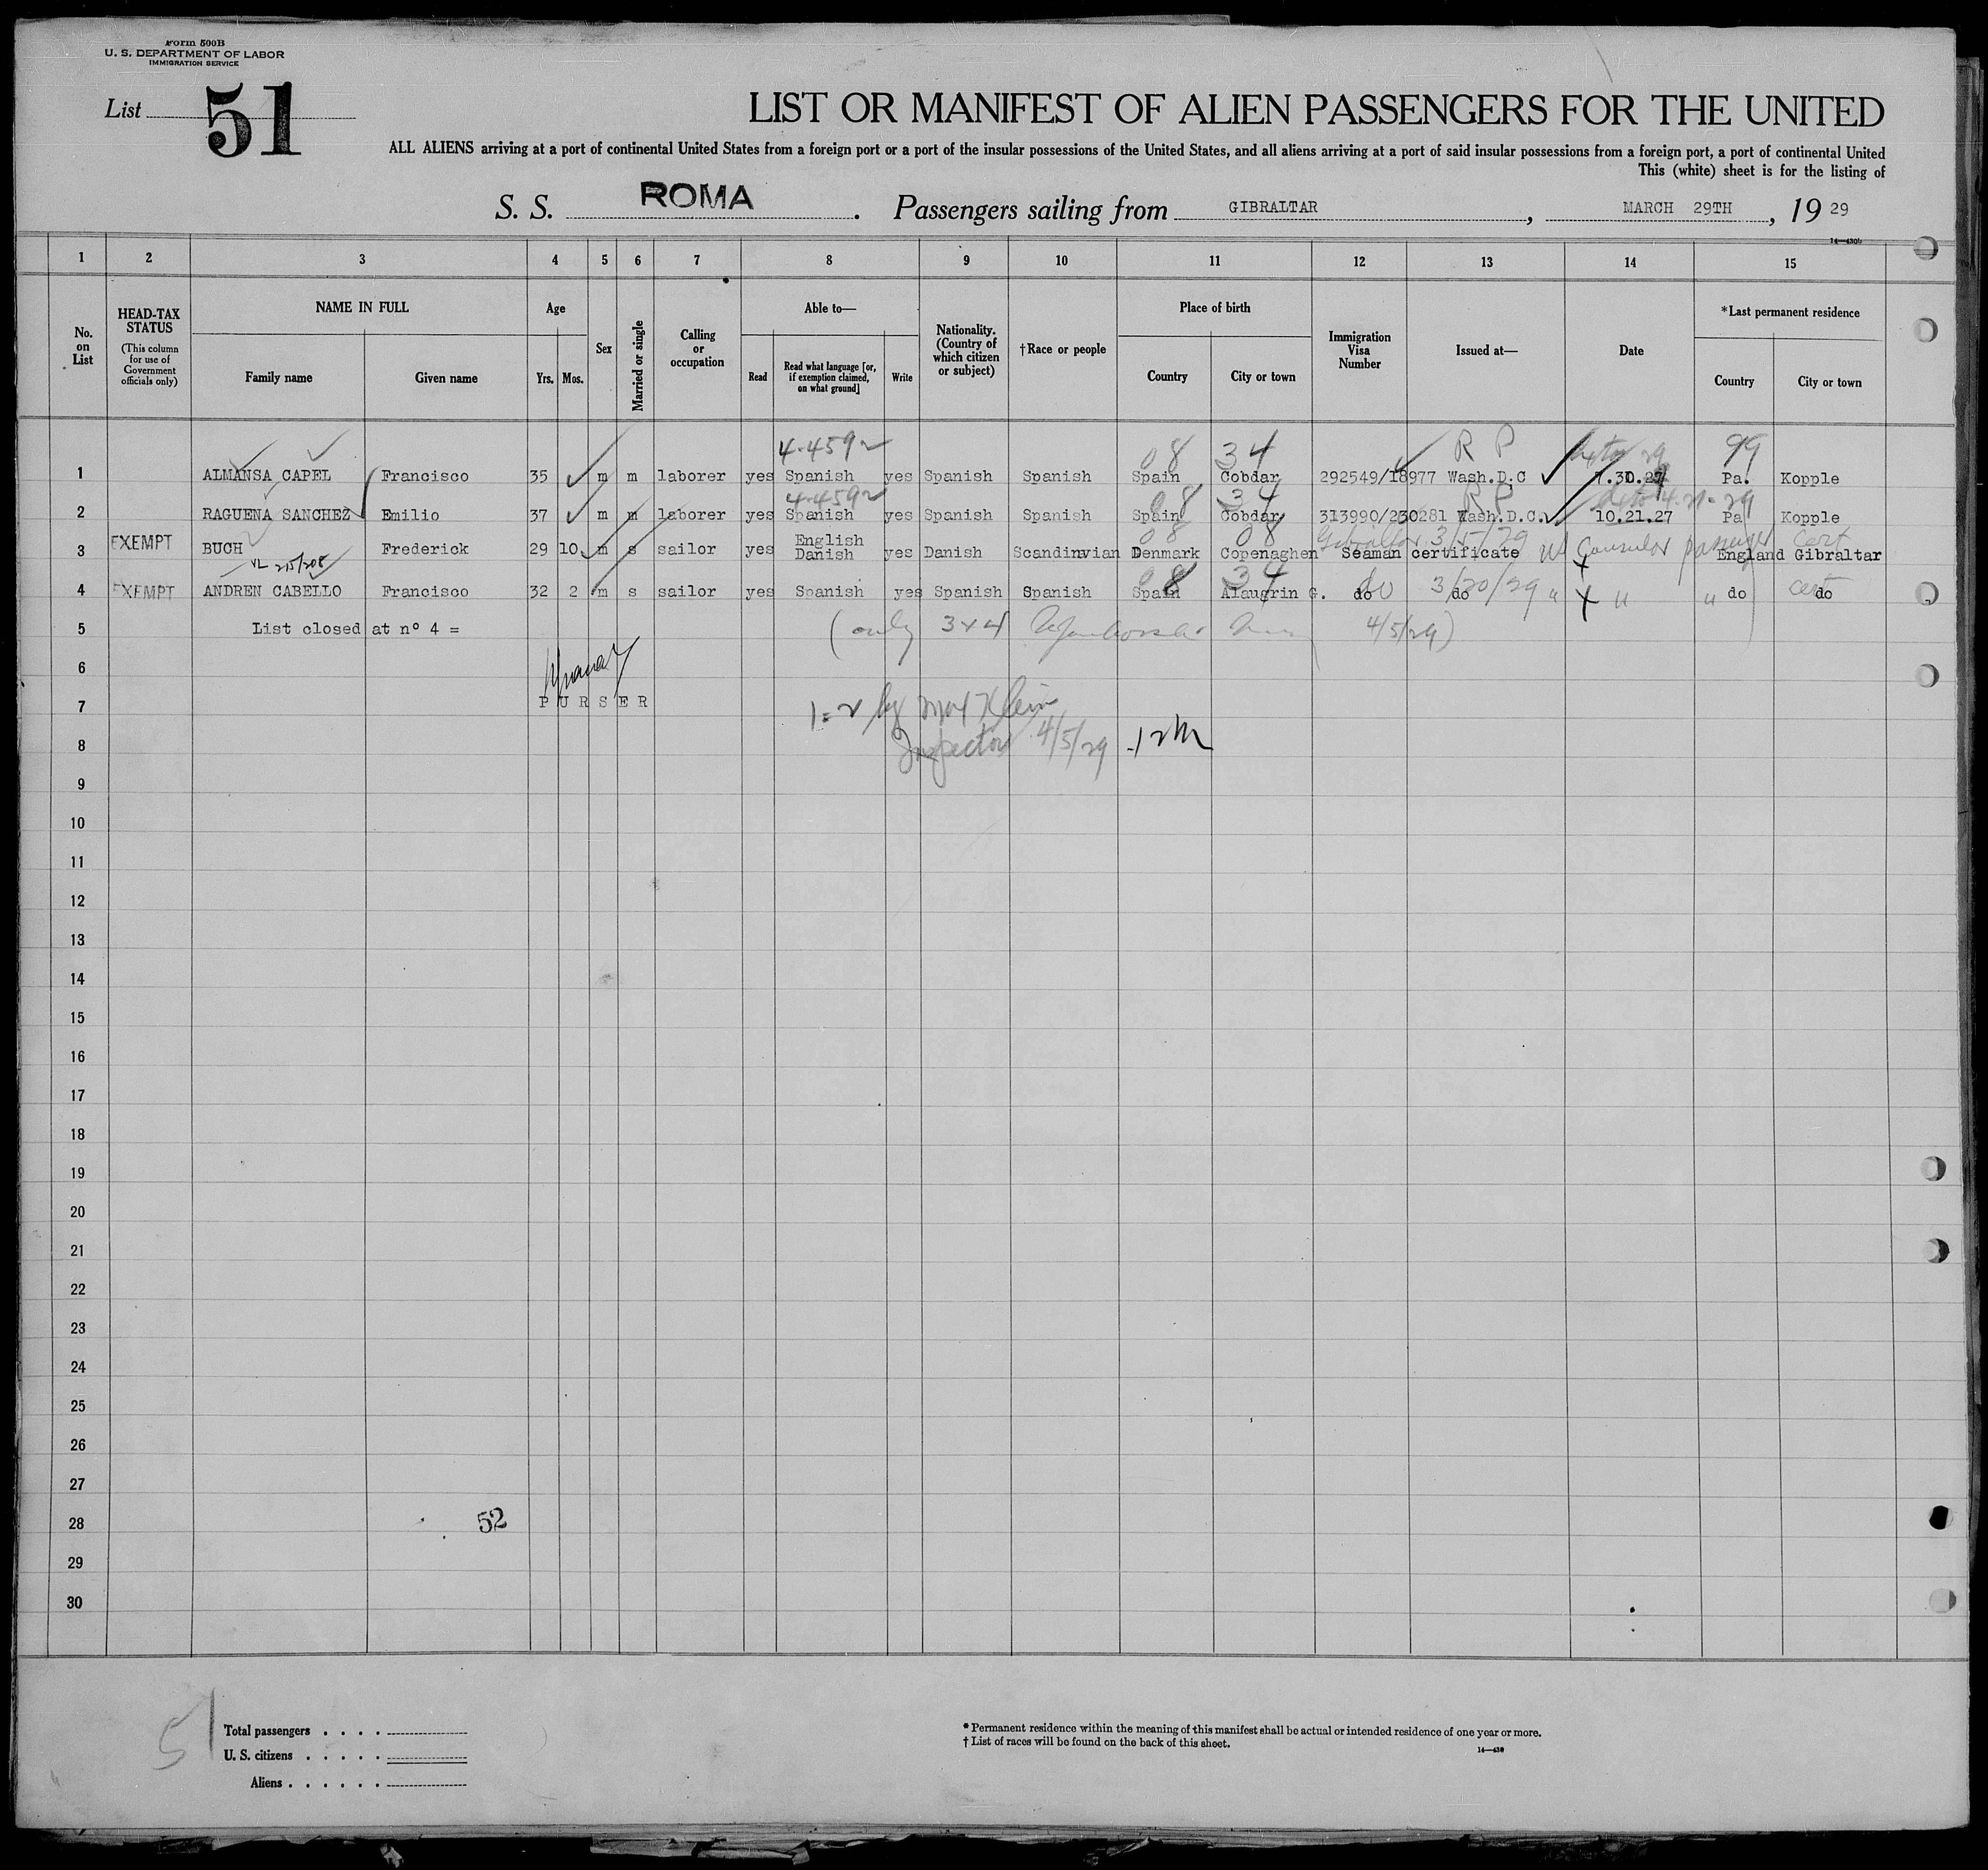 Form 500B
U. S. DEPARTMENT OF LABOR
IMMIGRATION SERVICE
List 51
LIST OR MANIFEST OF ALIEN PASSENGERS FOR THE UNITED
ALL ALIENS arriving at a port of continental United States from a foreign port or a port of the insular possessions of the United States, and all aliens arriving at a port of said insular possessions from a foreign port, a port of continental United
This (white) sheet is for the listing of
S. S. ROMA. Passengers sailing from GIBRALTAR, MARCH 29TH, 19 29
1 2 3 4 5 6 7 8 9 10 11 12 13 14 15
No. on List
HEAD-TAX STATUS
(This column for use of Government officials only)
NAME IN FULL
Family name Given name
Age
Yrs. Mos.
Sex
Married or single
Calling or occupation
Able to—
Read
Read what language [or, if exemption claimed, on what ground]
Write
Nationality. (Country of which citizen or subject)
†Race or people
Place of birth
Country City or town
Immigration Visa Number
Issued at—
Date
*Last permanent residence
Country City or town
4-4592 08 34 R P 99
1 ALMANSA CAPEL Francisco 35 m m laborer yes Spanish yes Spanish Spanish Spain Cobdar 292549/18977 Wash.D.C 7.30.27 Pa. Kopple
4-4592 08 34 R P 4-21-29
2 RAGUENA SANCHEZ Emilio 37 m m laborer yes Spanish yes Spanish Spanish Spain Cobdar 313990/230281 Wash.D.C. 10.21.27 Pa Kopple
08 08 Gibraltar 3/5/29 US Consular passenger cert
3 EXEMPT BUCH Frederick 29 10 m s sailor yes English Danish yes Danish Scandinvian Denmark Copenaghen Seaman certificate England Gibraltar
VL 215/208
08 34 3/20/29 " " " cert
4 EXEMPT ANDREN CABELLO Francisco 32 2 m s sailor yes Spanish yes Spanish Spanish Spain Alaugrin G. do do do do
5 List closed at nº 4 = (only 3+4 4/5/29)
6
7 PURSER 1=2 by Max Klein
8 Inspector 4/5/29
9
10
11
12
13
14
15
16
17
18
19
20
21
22
23
24
25
26
27
28 52
29
30
51
Total passengers . . . .
U. S. citizens . . . . .
Aliens . . . . . .
* Permanent residence within the meaning of this manifest shall be actual or intended residence of one year or more.
† List of races will be found on the back of this sheet.
14—430